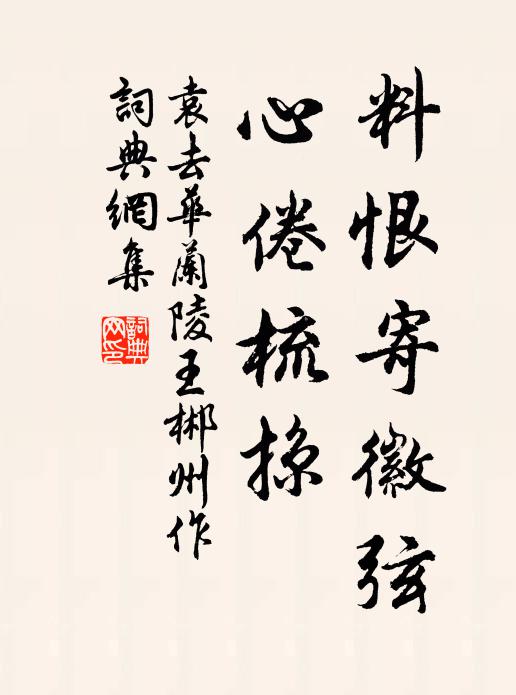 料恨寄徽弦
心倦梳掠
袁去華蘭陵王郴州作
詞典網集
詞典网印